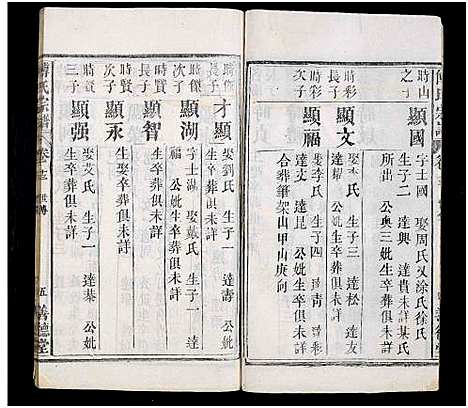 時山
之子
顯國
字士國 娶周氏又涂氏徐氏
生子二 達貴未詳某氏
所出 公與三妣生卒葬俱
未詳
時彩
長子
顯文
娶李氏 生子三 達松 達
達耀 公妣生卒葬俱未詳
時彩
次子
顯福
娶李氏 生子四 達青 達彩
達艾 達崑 公妣生卒俱未詳
合葬筆架山甲山庚向
傅氏宗譜
時傑
長子
才顯
娶劉氏 生子一 達壽 公妣
生卒葬俱未詳
時傑
次子
顯湖
字 娶戴氏 生子一 達
福 公妣生卒葬俱未詳
時賢
長子
顯智
生卒葬俱未詳
時賢
次子
顯永
生卒葬俱未詳
時賢
三子
顯强
娶艾氏 生子一 達菜 公妣
生卒葬俱未詳
傅氏宗譜 卷 世傳 五 善德堂